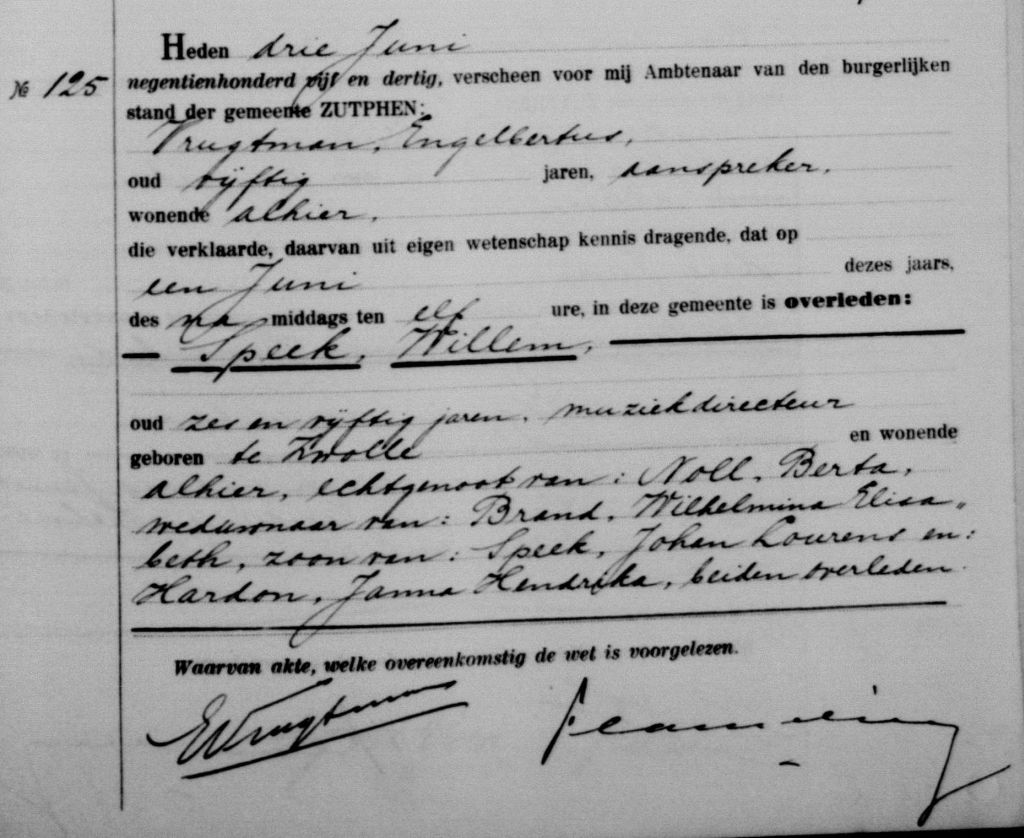 Heden drie Juni
№ 125
negentienhonderd vijf en dertig, verscheen voor mij Ambtenaar van den burgerlijken
stand der gemeente ZUTPHEN:
Vrugtman, Engelbertus,
oud vijftig jaren, aanspreker,
wonende alhier,
die verklaarde, daarvan uit eigen wetenschap kennis dragende, dat op
een Juni dezes jaars,
des na middags ten elf ure, in deze gemeente is overleden:
Speek, Willem,
oud zes en vijftig jaren, muziekdirecteur
geboren te Zwolle en wonende
alhier, echtgenoot van: Noll, Berta,
weduwnaar van: Brand, Wilhelmina Elisa„
beth, zoon van: Speek, Johan Lourens en:
Hardon, Janna Hendrika, beiden overleden.
Waarvan akte, welke overeenkomstig de wet is voorgelezen.
EVrugtman